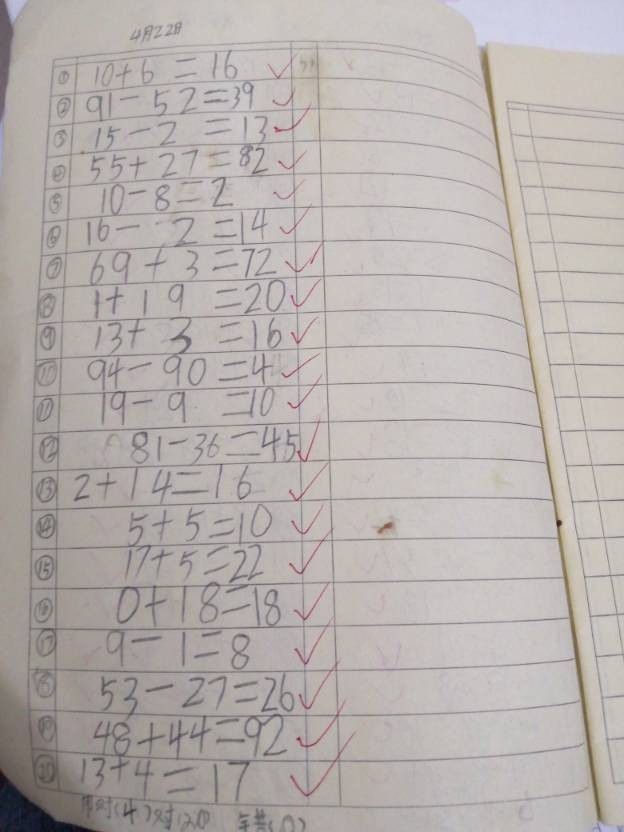 4月22日
① 10+6=16
② 91-52=39
③ 15-2=13
④ 55+27=82
⑤ 10-8=2
⑥ 16-2=14
⑦ 69+3=72
⑧ 1+19=20
⑨ 13+3=16
⑩ 94-90=4
⑪ 19-9=10
⑫ 81-36=45
⑬ 2+14=16
⑭ 5+5=10
⑮ 17+5=22
⑯ 0+18=18
⑰ 9-1=8
⑱ 53-27=26
⑲ 48+44=92
⑳ 13+4=17
用时(4)对(20) 错(0)